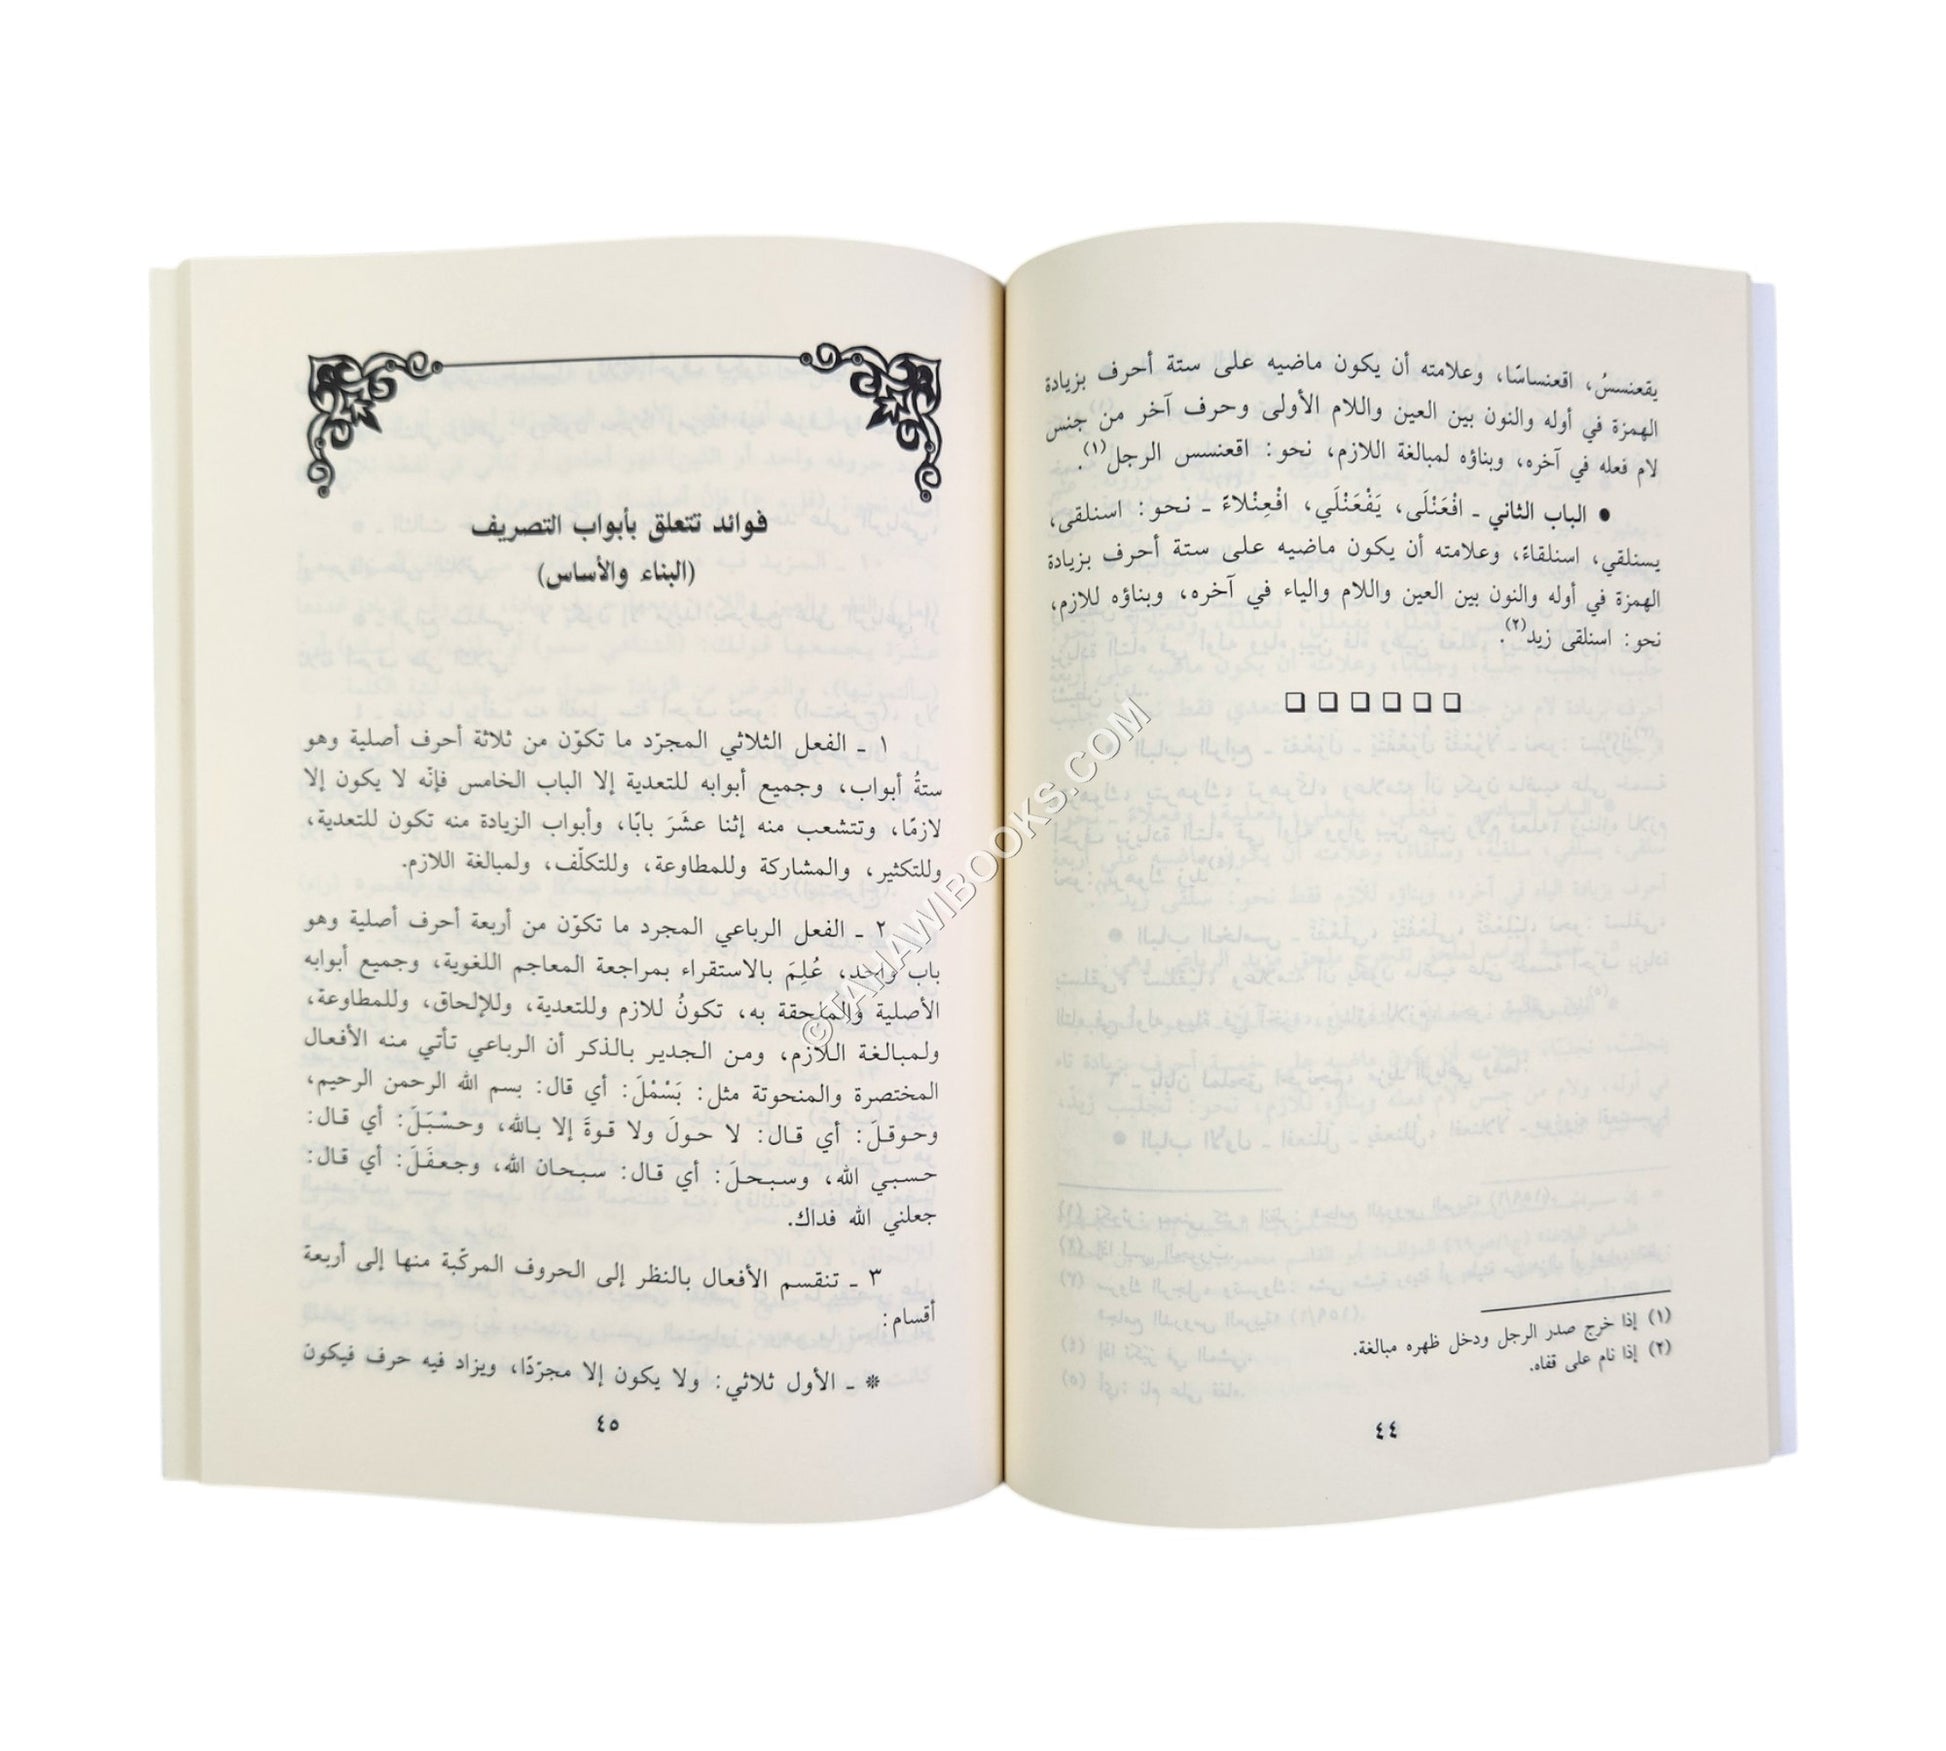 يقعنسسُ، اقعنساسًا، وعلامته أن يكون ماضيه على ستة أحرف بزيادة
الهمزة في أوله والنون بين العين واللام الأولى وحرف آخر من جنس
لام فعله في آخره، وبناؤه لمبالغة اللازم، نحو: اقعنسس الرجل(١).
● الباب الثاني ـ افْعَنْلَى، يَفْعَنْلَي، افْعِنْلاءً ـ نحو: اسنلقى،
يسنلقي، اسنلقاءً، وعلامته أن يكون ماضيه على ستة أحرف بزيادة
الهمزة في أوله والنون بين العين واللام والياء في آخره، وبناؤه للازم،
نحو: اسنلقى زيد(٢).
❑ ❑ ❑ ❑ ❑ ❑
(١) إذا خرج صدر الرجل ودخل ظهره مبالغة.
(٢) إذا نام على قفاه.
٤٤
فوائد تتعلق بأبواب التصريف
(البناء والأساس)
١ ـ الفعل الثلاثي المجرّد ما تكوّن من ثلاثة أحرف أصلية وهو
ستةُ أبواب، وجميع أبوابه للتعدية إلا الباب الخامس فإنّه لا يكون إلا
لازمًا، وتتشعب منه إثنا عشَرَ بابًا، وأبواب الزيادة منه تكون للتعدية،
وللتكثير، والمشاركة وللمطاوعة، وللتكلّف، ولمبالغة اللازم.
٢ ـ الفعل الرباعي المجرد ما تكوّن من أربعة أحرف أصلية وهو
باب واحد، عُلِمَ بالاستقراء بمراجعة المعاجم اللغوية، وجميع أبوابه
الأصلية والملحقة به، تكونُ للازم وللتعدية، وللإلحاق، وللمطاوعة،
ولمبالغة اللازم، ومن الجدير بالذكر أن الرباعي تأتي منه الأفعال
المختصرة والمنحوتة مثل: بَسْمْلَ: أي قال: بسم الله الرحمن الرحيم،
وحوقلَ: أي قال: لا حولَ ولا قوةَ إلا بالله، وحسْبَلَ: أي قال:
حسبي الله، وسبحلَ: أي قال: سبحان الله، وجعفَلَ: أي قال:
جعلني الله فداك.
٣ ـ تنقسم الأفعال بالنظر إلى الحروف المركّبة منها إلى أربعة
أقسام:
* ـ الأول ثلاثي: ولا يكون إلا مجرّدًا، ويزاد فيه حرف فيكون
٤٥
©TAHAWIBOOKS.COM